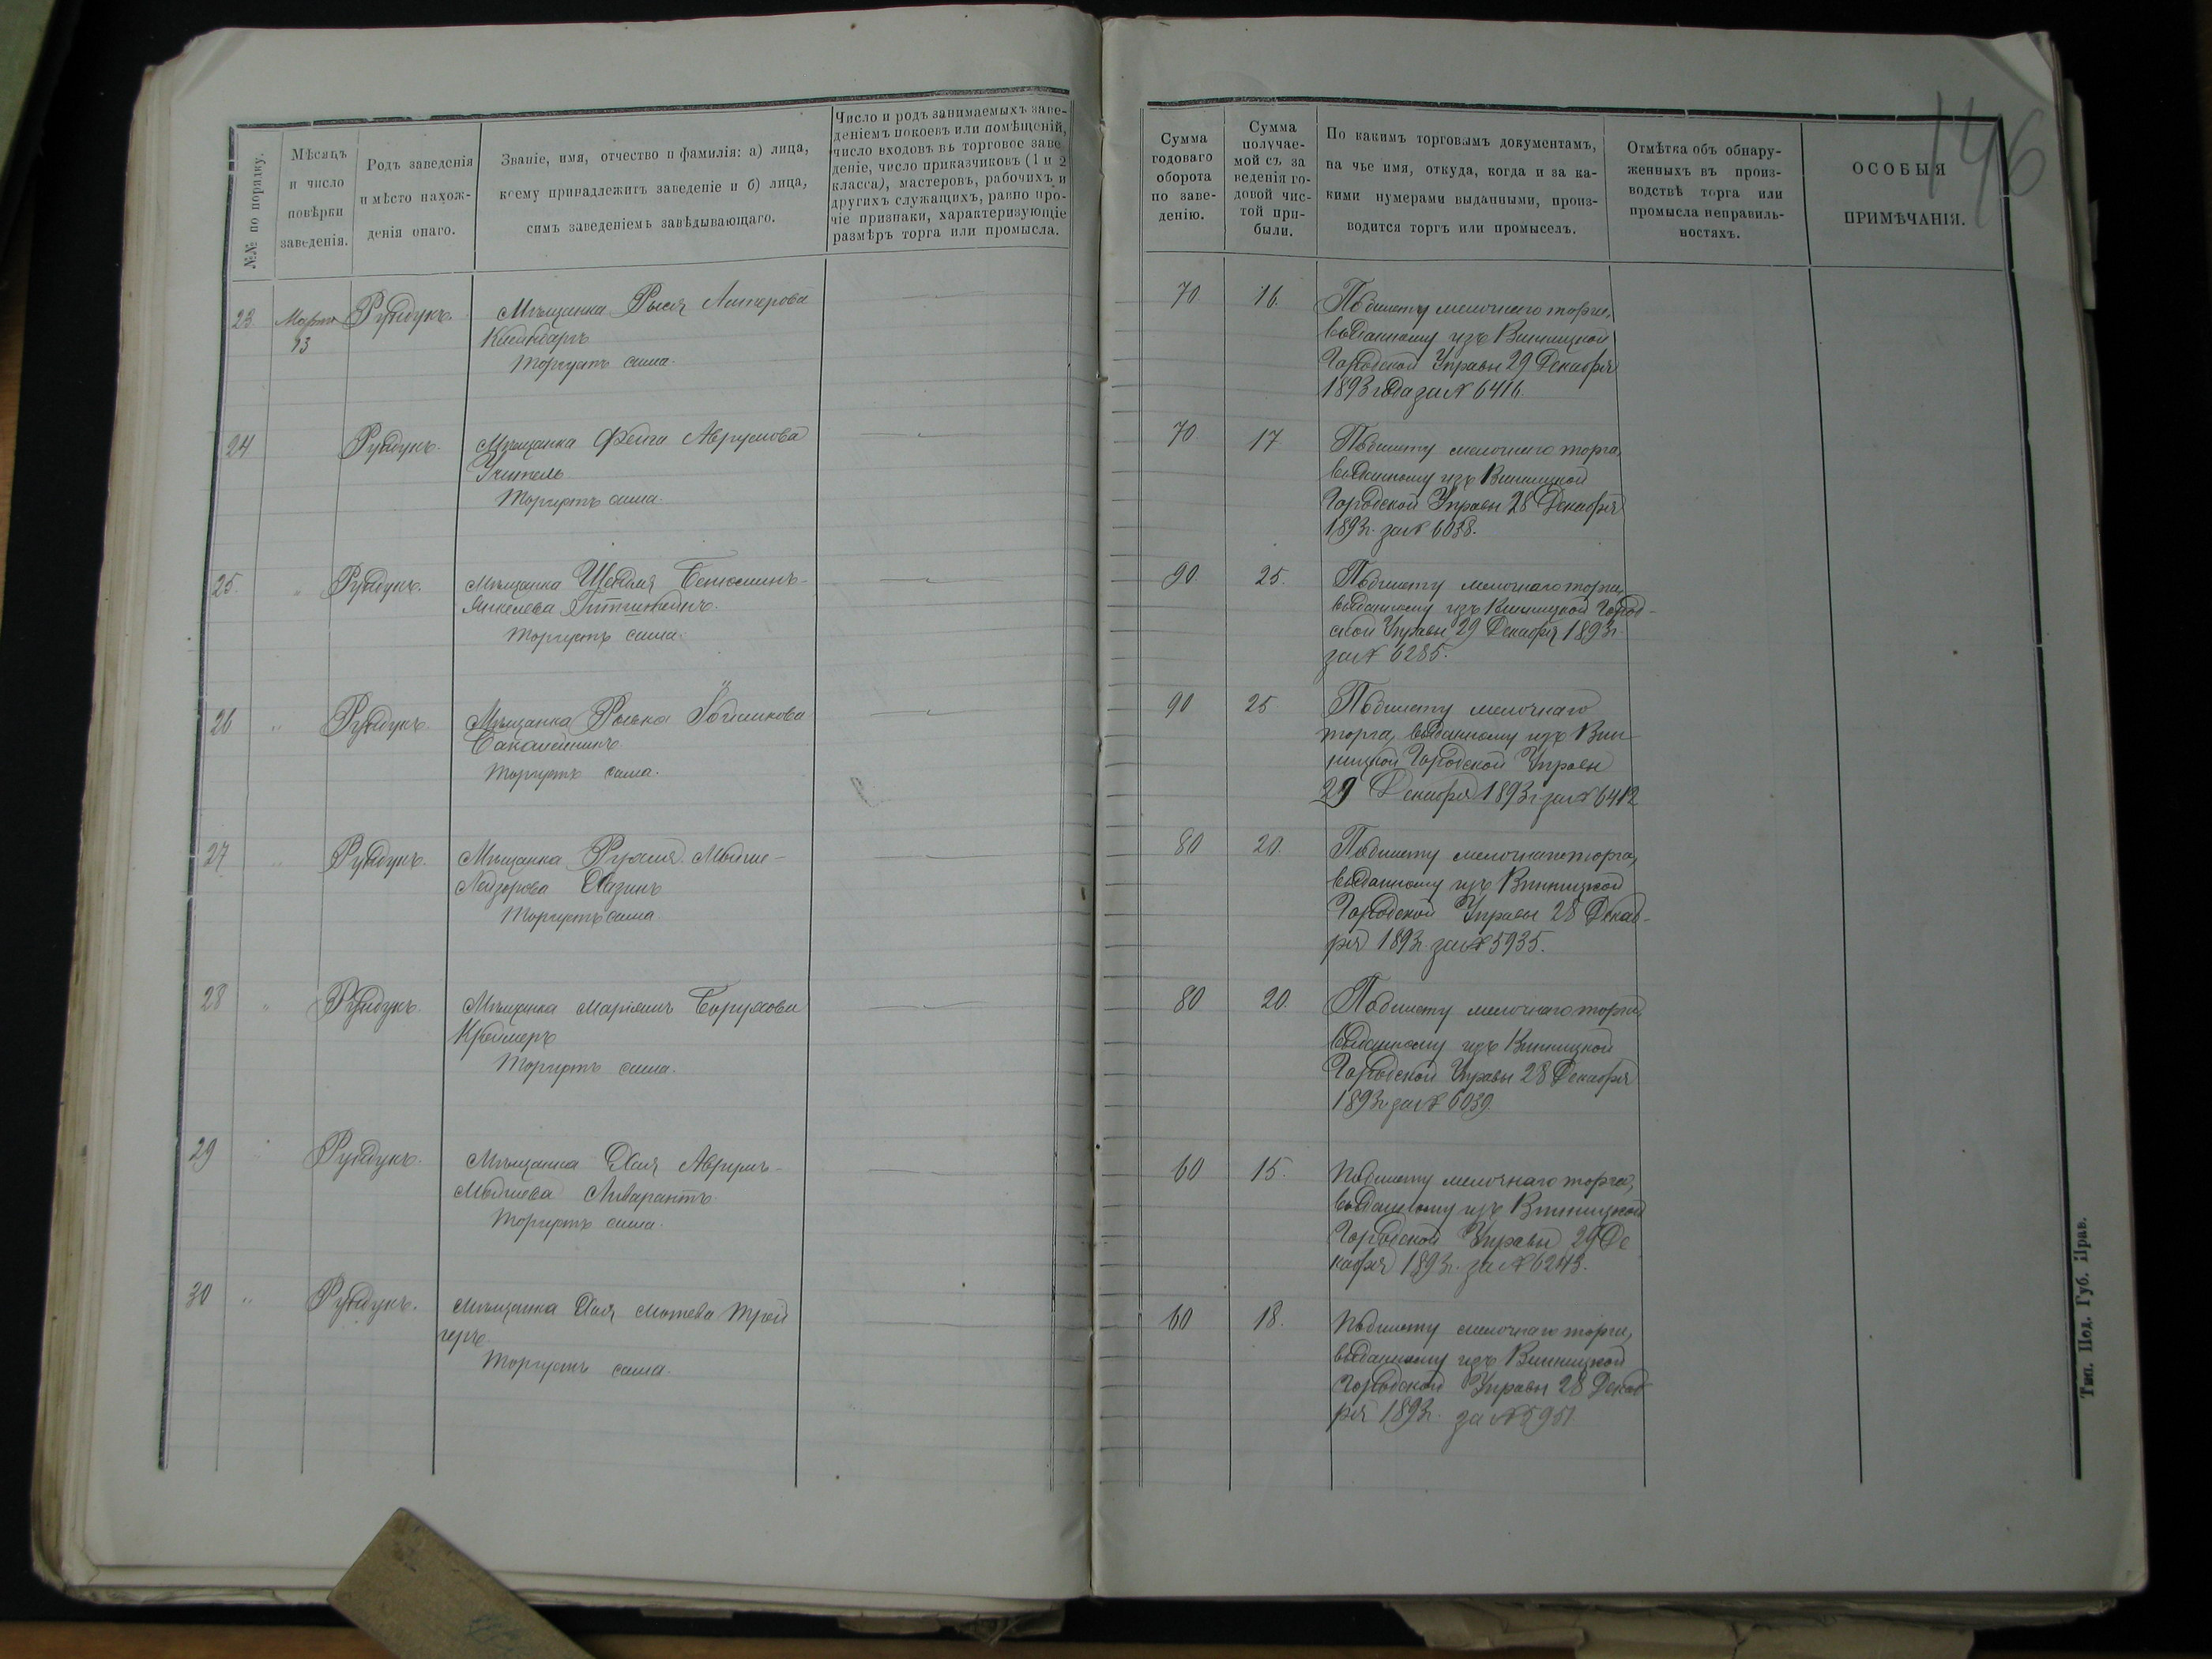 146
№№ по порядку.
Мѣсяцъ
и число
повѣрки
заведенія.
Родъ заведенія
и мѣсто нахож-
денія онаго.
Званіе, имя, отчество и фамилія: а) лица,
коему принадлежитъ заведеніе и б) лица,
симъ заведеніемъ завѣдывающаго.
Число и родъ занимаемыхъ заве-
деніемъ покоевъ или помѣщеній,
число входовъ въ торговое заве-
деніе, число приказчиковъ (1 и 2
класса), мастеровъ, рабочихъ и
другихъ служащихъ, равно про-
чіе признаки, характеризующіе
размѣръ торга или промысла.
Сумма
годоваго
оборота
по заве-
денію.
Сумма
получае-
мой съ за
веденія го-
довой чис-
той при-
были.
По какимъ торговымъ документамъ,
на чье имя, откуда, когда и за ка-
кими нумерами выданными, произ-
водится торгъ или промыселъ.
Отмѣтка объ обнару-
женныхъ въ произ-
водствѣ торга или
промысла неправиль-
ностяхъ.
ОСОБЫЯ
ПРИМѢЧАНІЯ.
23. Марта 13 Рундукъ. Мѣщанка Рыся Липерова
Торгуетъ сама.
70 16. По билету мелочнаго торга,
выданному изъ Винницкой
Городской Управы 29 Декабря
1893 года за № 6416.
24 Рундукъ. Мѣщанка Фейга Аврумова
Учитель
Торгуетъ сама.
70 17 По билету мелочнаго торга,
выданному изъ Винницкой
Городской Управы 28 Декабря
1893 г. за № 6038.
25. " Рундукъ. Мѣщанка Шейдля Бенюминъ-
Янкелева
Торгуетъ сама.
90 25. По билету мелочнаго торга,
выданному изъ Винницкой Город-
ской Управы 29 Декабря 1893 г.
за № 6285.
26 " Рундукъ. Мѣщанка Роська
Торгуетъ сама.
90 25 По билету мелочнаго
торга, выданному изъ Вин-
ницкой Городской Управы
29 Декабря 1893 г. за № 6412
27 " Рундукъ. Мѣщанка Рухля Мойше-
Лейзорова Хазинъ
Торгуетъ сама.
80 20. По билету мелочнаго торга,
выданному изъ Винницкой
Городской Управы 28 Декаб-
ря 1893 г. за № 5935.
28 " Рундукъ. Мѣщанка Маріямъ Борухова
Креймеръ
Торгуетъ сама.
80 20. По билету мелочнаго торга,
выданному изъ Винницкой
Городской Управы 28 Декабря
1893 г. за № 6039.
29 " Рундукъ. Мѣщанка Хая Аврумъ-
Мошева Ливарантъ
Торгуетъ сама.
60 15. По билету мелочнаго торга,
выданному изъ Винницкой
Городской Управы 29 Де
кабря 1893 г. за № 6243.
30 " Рундукъ. Мѣщанка Хая Мотева Трей
геръ
Торгуетъ сама.
60 18. По билету мелочнаго торга,
выданному изъ Винницкой
Городской Управы 28 Декаб-
ря 1893 г. за № 5951
Тип. Под. Губ. Прав.